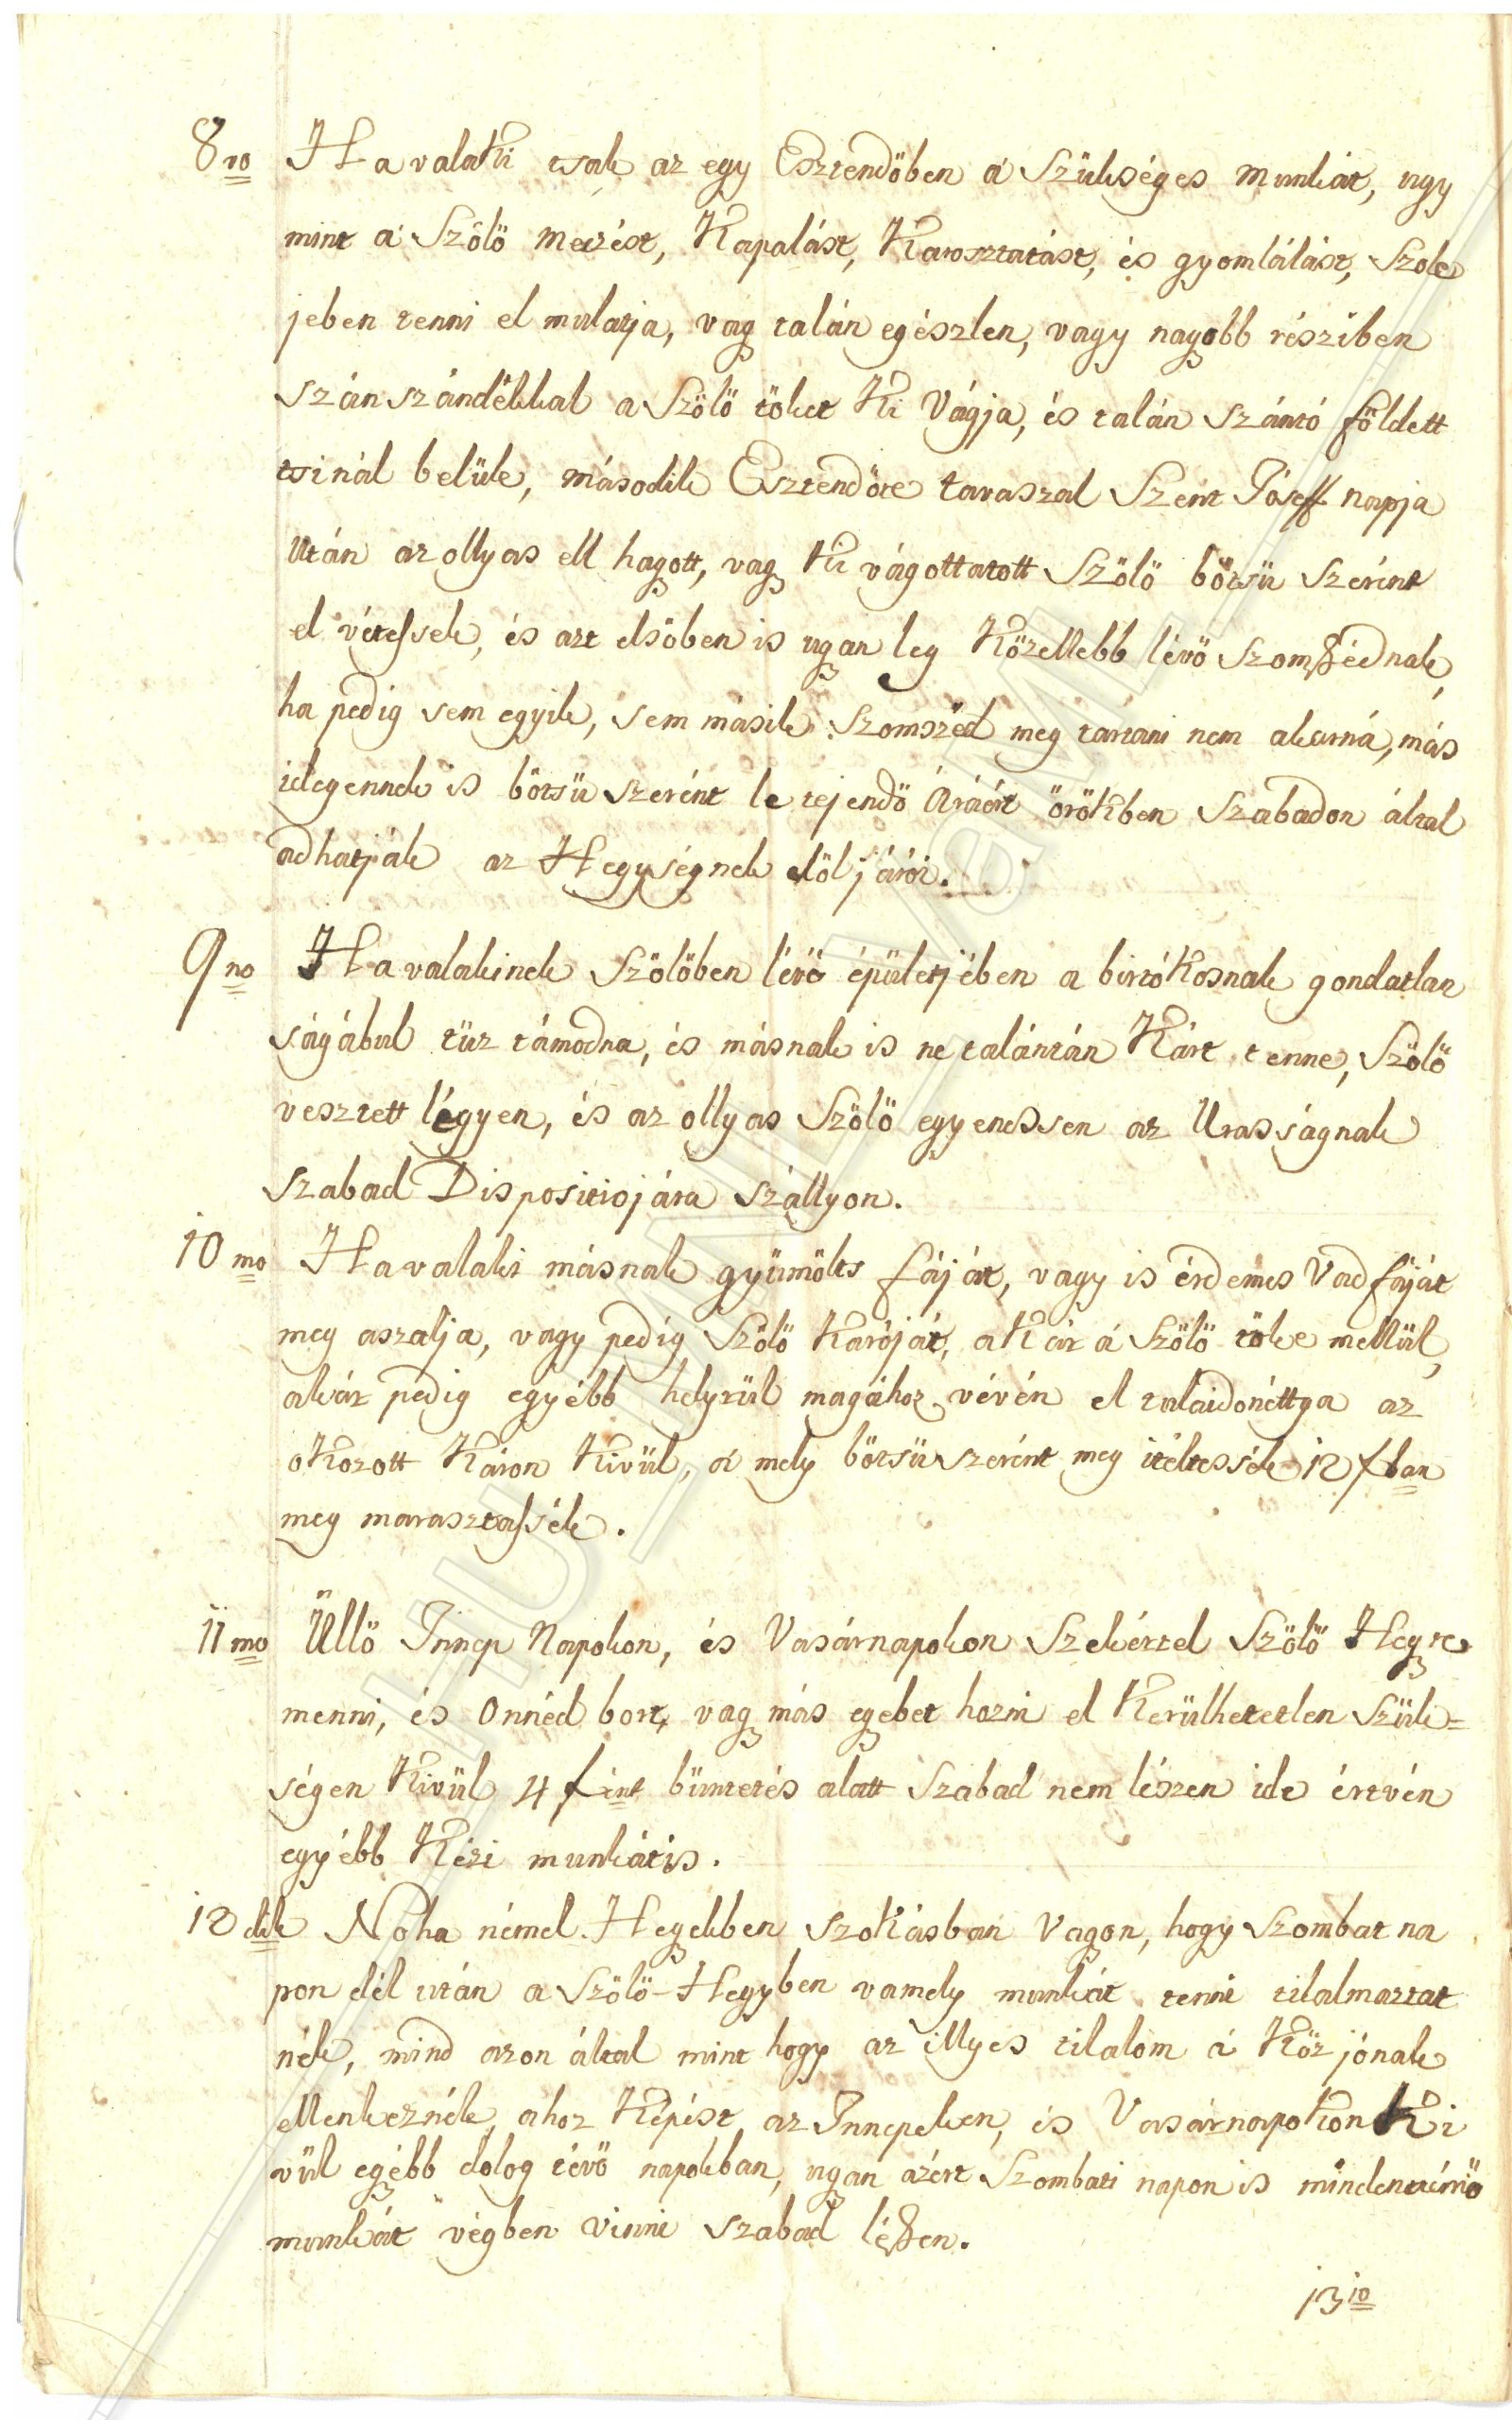 8vo Ha valaki tsak az egy Esztendöben á Szükséges munkát, ugy
mint á Szölö metzést, Kapalást, Karosztatást, és gyomlálást, Szole
jeben tenni el mulatja, vagy talán egészlen, vagy nagyobb résziben
szánszándékkal a Szölö tökét Ki Vágja, és talán szántó földett
tsinál belüle, második Esztendöre tavaszal Szent Jóseff napja
Után az ollyas ell hagott, vagy Ki vágottatott Szölö bötsü szerént
el vétessék, és azt elsöben is ugyan leg Közellebb lévö Szomszédnak,
ha pedig sem egyik, sem másik Szomszéd meg tartani nem akarná, más
idegennek is bötsü szerént le tejendö Áráért örökben Szabadon által
adhatják az Hegységnek elöljárói.
9no Ha valakinek Szölöben lévö épületjében a birtókosnak gondatlan
ságábul tüz támodna, és másnak is ne talántán Kárt tenne, Szölö
vesztett légyen, és az ollyas Szölö egyenessen az Urasságnak
szabad Dispositiojára szállyon.
10mo Ha valaki másnak gyümölts fáját, vagy is érdemes Vad fáját
meg aszalja, vagy pedig Szölö Karóját, aKár á Szölö töke mellül,
akár pedig egyébb helyrül magához vévén el tulaidonéttya az
oKozott Káron Kivül, á mely bötsü szerént meg itéltessék 12 fban
meg marasztassék.
11mo Üllö Innep Napokon, és Vasárnapokon Szekérrel Szölö Hegyre
menni, és Onnéd bort, vagy más egyebet hozni el Kerülhetetlen Szük=
ségen Kivül 4 frint büntetés alatt Szabad nem lészen ide értvén
egyébb Kézi munkátis.
12dik Noha némel Hegyekben szoKásban Vagyon, hogy Szombat na
pon dél után a Szölö-Hegyben vamely munkát tenni tilalmaztat
nék, mind azon által mint hogy az illyes tilalom á Köz jónak
ellenkeznék, ahoz Képést az Innepeken, és VasárnapoKon Ki
vül egyébb dolog tévö napokban, ugyan azért Szombati napon is mindennémü
munkát végben vinni szabad lészen.
13io
HU MNL VaML